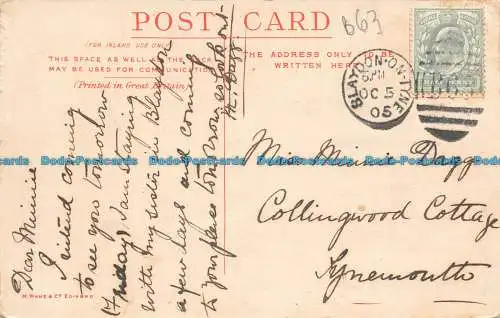 POST CARD
B63
(FOR INLAND USE ONLY)
THIS SPACE AS WELL AS THE BACK
MAY BE USED FOR COMMUNICATION
(Printed in Great Britain)
THE ADDRESS ONLY TO BE
WRITTEN HERE
BLAYDON-ON-TYNE
6 PM
OC 5
05
Dear Minnie
I intend coming
to see you tomorrow
(Friday) I am staying
with my sister in Blaydon
a few days and coming
to your place tomorrow so look out
M. Dagg
Miss Minnie Dagg
Collingwood Cottage
Tynemouth
M. WANE & CO. EDINBRO